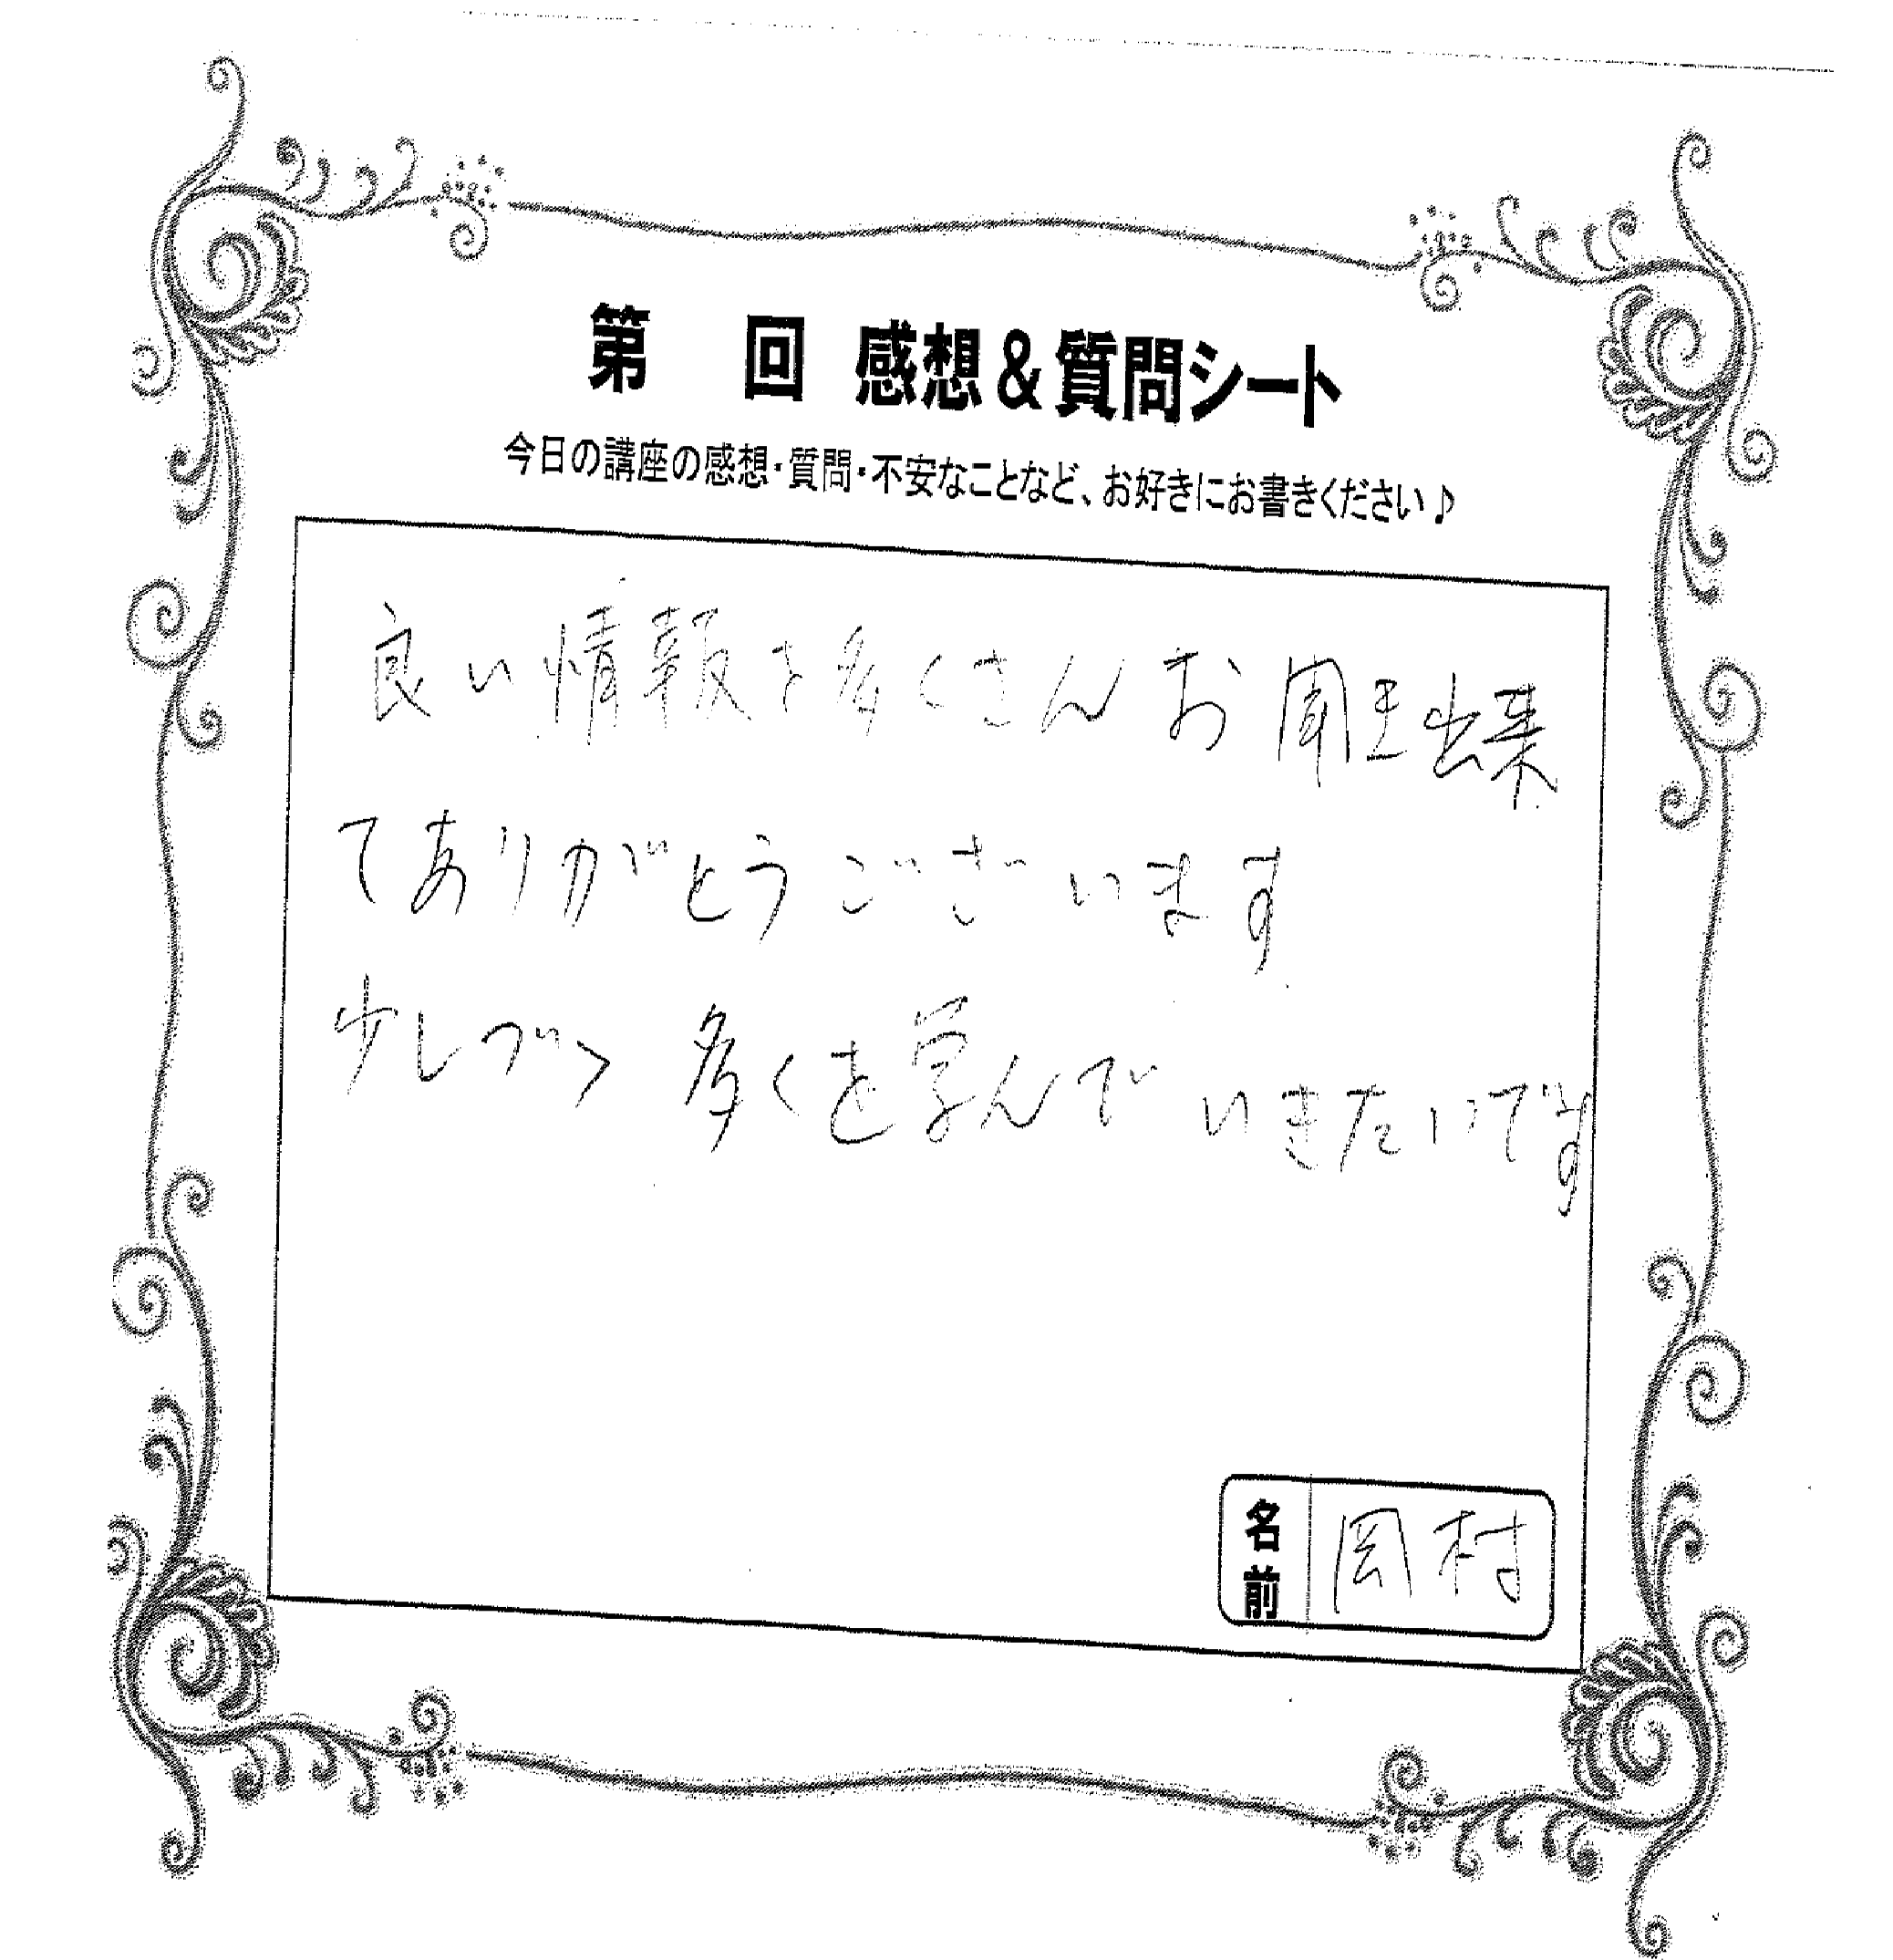 第 回 感想&質問シート
今日の講座の感想・質問・不安なことなど、お好きにお書きください♪
良い情報を多くさんお聞き出来
てありがとうございます
少しづつ多くを学んでいきたいです
名前 岡村